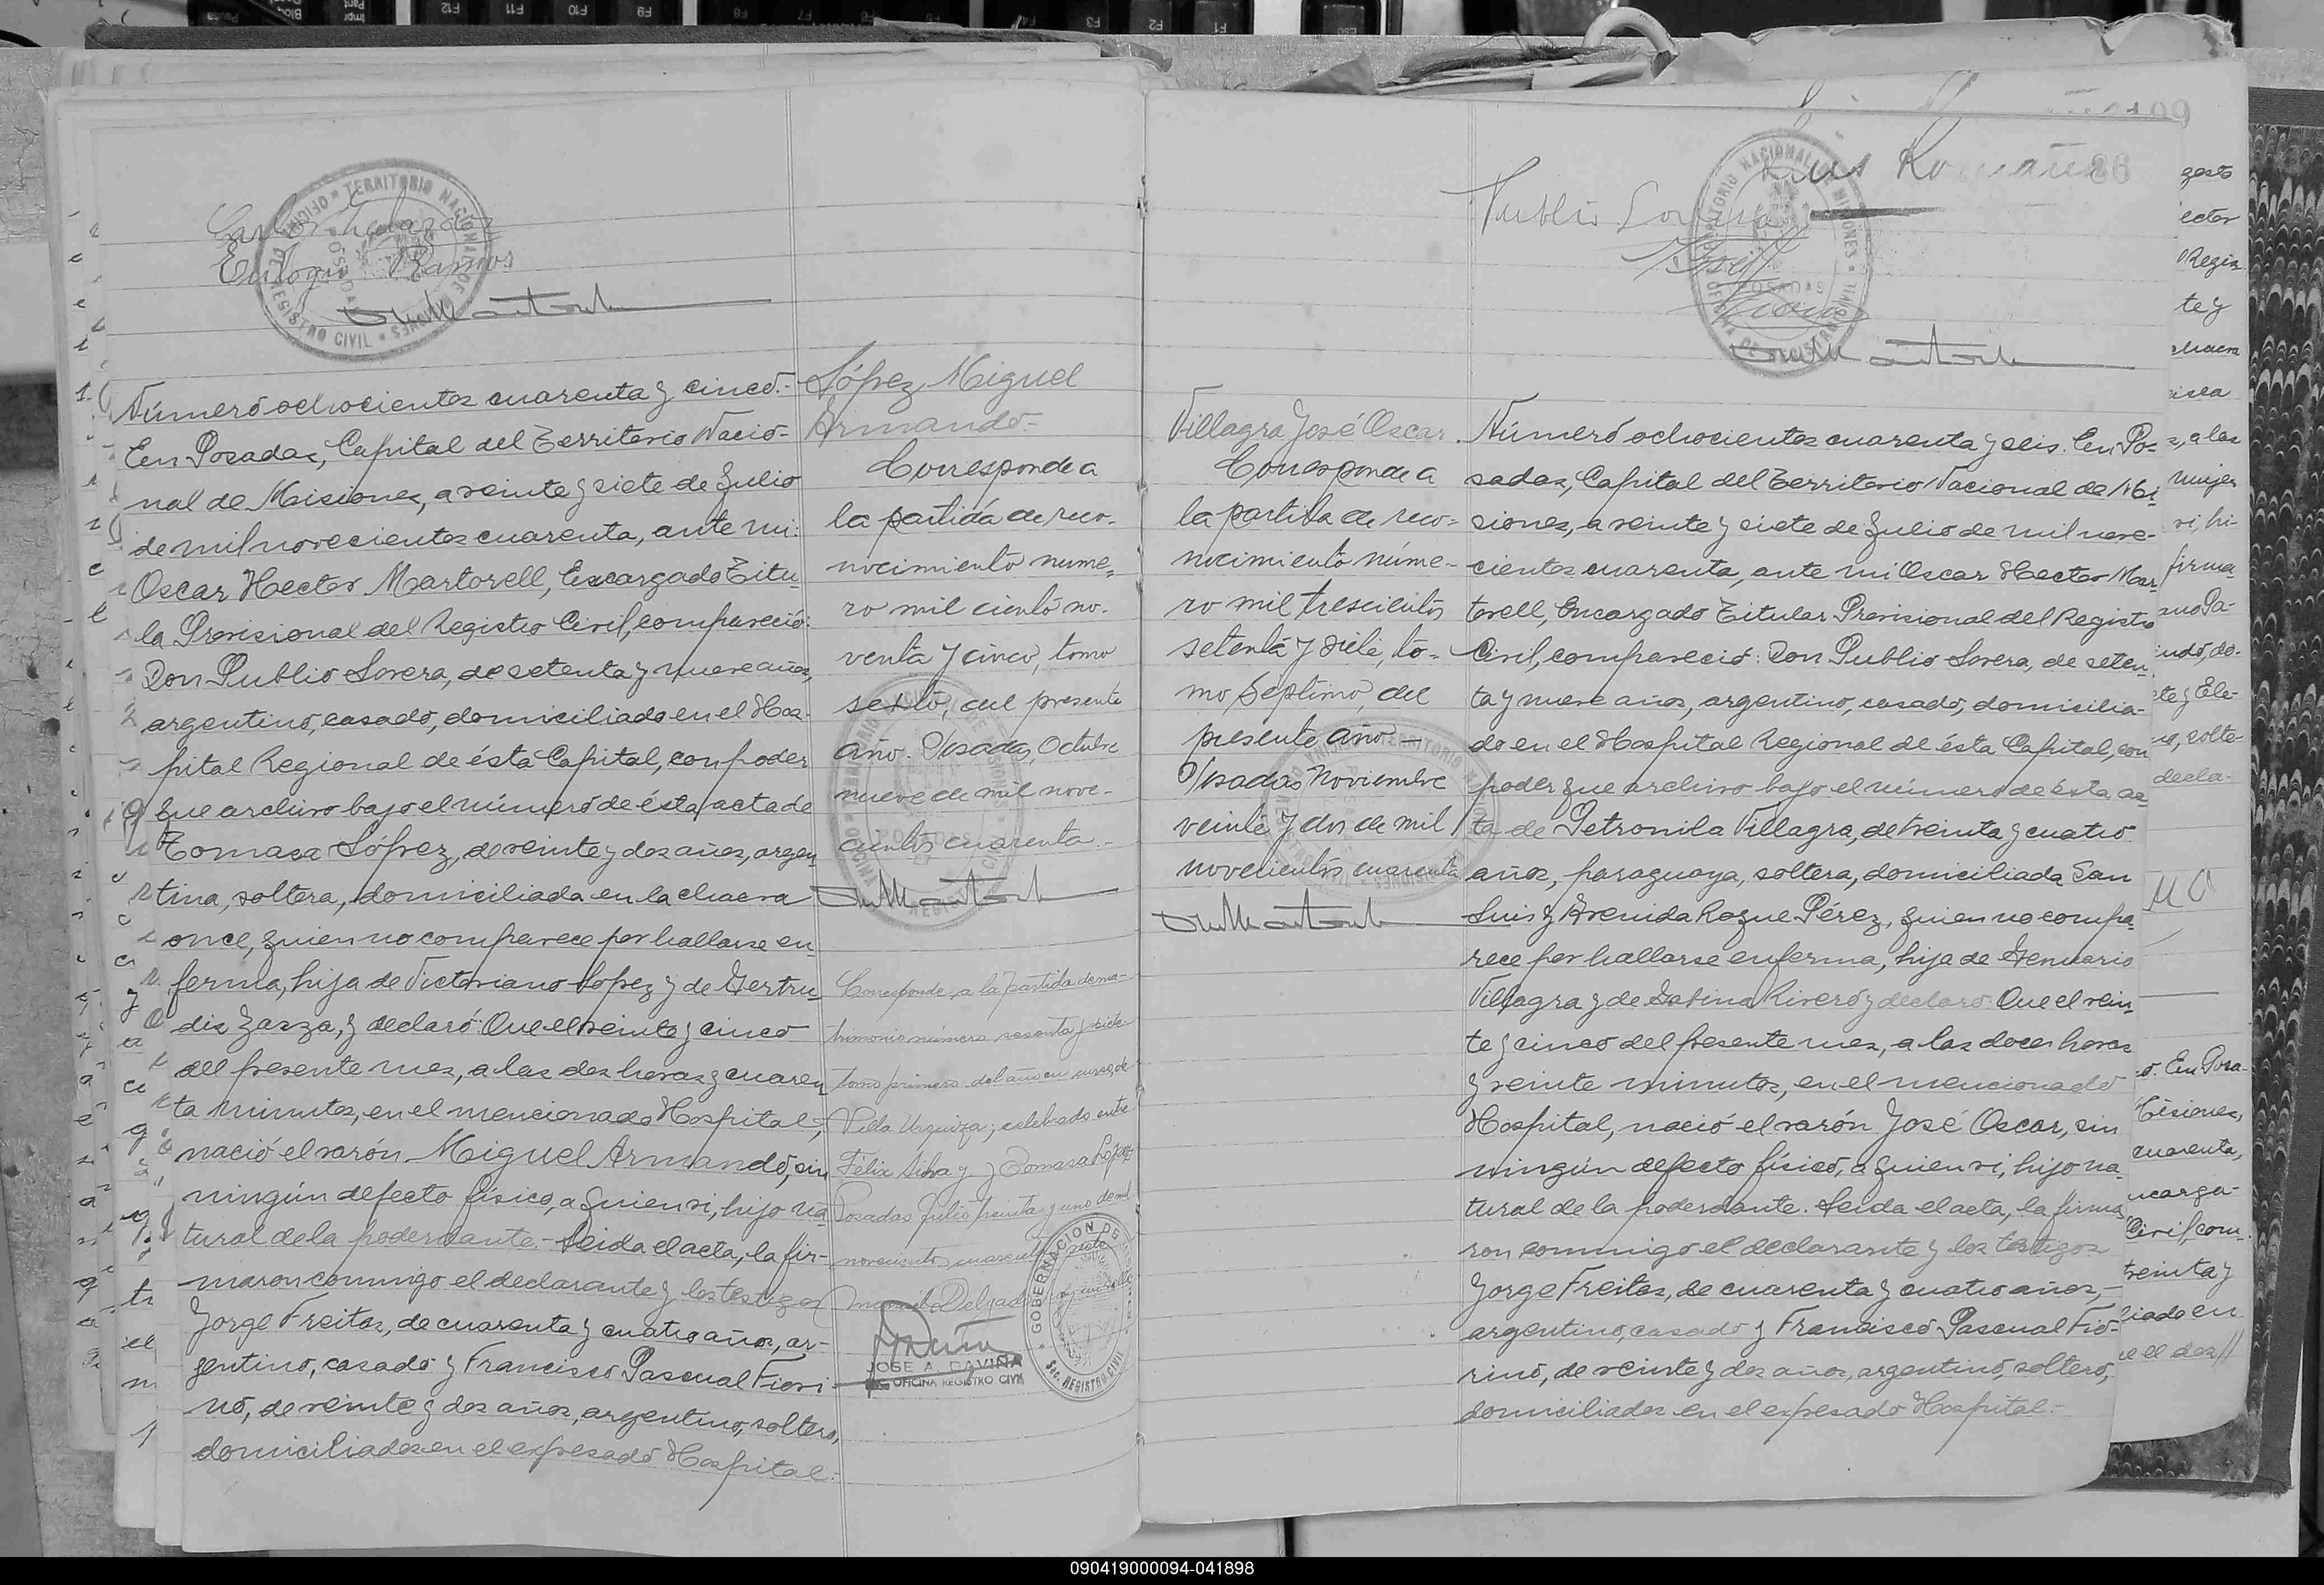 Eulogio Ramos
TERRITORIO NACIONAL DE MISIONES
OFICINA DE REGISTRO CIVIL
POSADAS
Número ochocientos cuarenta y cinco.-
En Posadas, Capital del Territorio Nacio-
nal de Misiones, a veinte y siete de Julio
de mil novecientos cuarenta, ante mi:
Oscar Hector Martorell, Encargado Titu-
la Provisional del Registro Civil, compareció:
Don Publio Lovera, de setenta y nueve años,
argentino, casado, domiciliado en el Hos-
pital Regional de ésta Capital, con poder
que archivo bajo el número de ésta acta de
Tomasa López, de veinte y dos años, argen
tina, soltera, domiciliada en la chacra
once, quien no comparece por hallarse en
ferma, hija de Victoriano López y de Gertru
dis Zarza, y declaró: Que el veinte y cinco
del presente mes, a las dos horas y cuaren
ta minutos, en el mencionado Hospital,
nació el varón Miguel Armando, sin
ningún defecto físico, a quien vi, hijo na
tural de la poderdante.- Leida el acta, la fir-
maron conmigo el declarante y los testigos
Jorge Freitas, de cuarenta y cuatro años, ar-
gentino, casado y Francisco Pascual Fiori-
no, de veinte y dos años, argentino, soltero,
domiciliados en el expresado Hospital.-
López Miguel
Armando-
Corresponde a
la partida de reco-
nocimiento nume-
ro mil ciento no-
venta y cinco, tomo
sexto, del presente
año. Posadas, Octubre
nueve de mil nove-
cientos cuarenta.-
Corresponde a la partida de ma-
trimonio número sesenta y siete
tomo primero del año en curso, de
Villa Urquiza, celebrado entre
Félix Silva y Tomasa López
Posadas Julio treinta y uno de mil
novecientos cuarenta
JOSE A. DAVIÑA
OFICINA REGISTRO CIVIL
GOBERNACION DE
SEC. REGISTRO CIVIL
86
Luis
Publio Lovera
POSADAS
Villagra José Oscar.
Corresponde a
la partida de reco-
nocimiento núme-
ro mil trescientos
setenta y siete, to-
mo septimo, del
presente año —
Posadas Noviembre
veinte y dos de mil
novecientos cuarenta
Número ochocientos cuarenta y seis. En Po-
sadas, Capital del Territorio Nacional de Mi
siones, a veinte y siete de Julio de mil nove-
cientos cuarenta, ante mi Oscar Hector Mar
torell, Encargado Titular Provisional del Registro
Civil, compareció: Don Publio Lovera, de seten
ta y nueve años, argentino, casado, domicilia-
do en el Hospital Regional de ésta Capital, con
poder que archivo bajo el número de ésta ac
ta de Petronila Villagra, de treinta y cuatro
años, paraguaya, soltera, domiciliada San
Luis y Avenida Roque Pérez, quien no compa
rece por hallarse enferma, hija de Genuario
Villagra y de Sabina Rivero y declaro: Que el vein
te y cinco del presente mes, a las doce horas
y veinte minutos, en el mencionado
Hospital, nació el varón José Oscar, sin
ningún defecto físico, a quien vi, hijo na
tural de la poderdante. Leida el acta, la firma
ron conmigo el declarante y los testigos
Jorge Freitas, de cuarenta y cuatro años,-
argentino, casado y Francisco Pascual Fio-
rino, de veinte y dos años, argentino, soltero,
domiciliados en el expresado Hospital.-
090419000094-041898